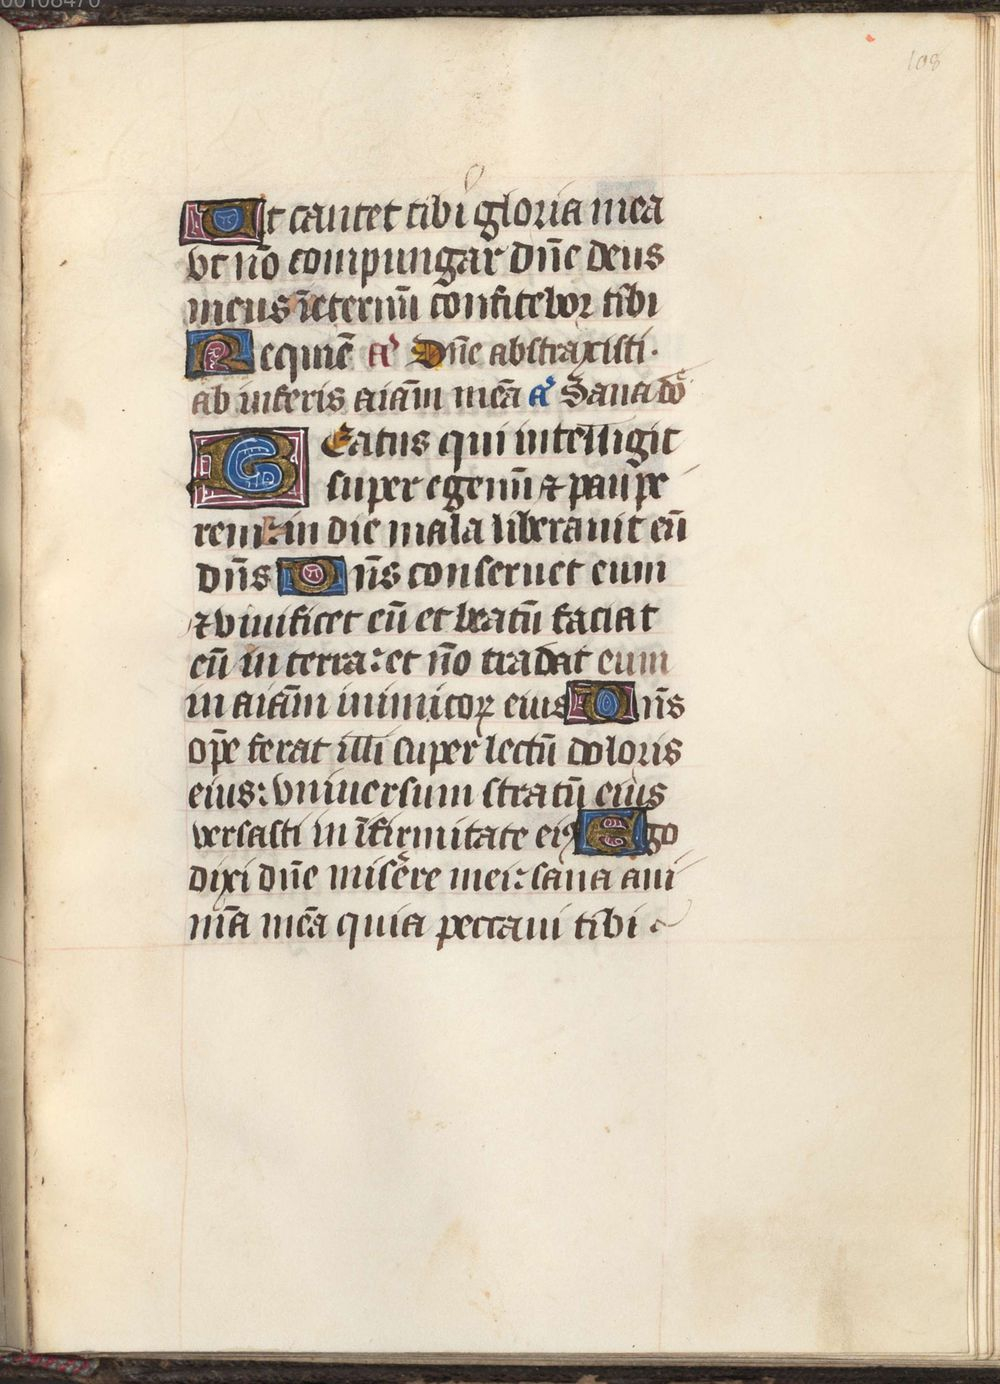 00108470
108
Ut cantet tibi gloria mea
vt nō compungar dn̄e deus
meus īeternū confitebor tibi
Requiē a' Dn̄e abstraxisti·
ab inferis aiām meā a' Sana dō
Beatus qui intelligit
super egenū ⁊ paupe
rem: in die mala liberauit eū
dn̄s Dn̄s conseruet eum
⁊ viuificet eū et beatū faciat
eū in terra: et nō tradat eum
in aiām inimicoꝝ eius Dn̄s
opē ferat illi super lectū doloris
eius: vniuersum stratū eius
versasti in īfirmitate eiꝰ Ego
dixi dn̄e misēre mei: sana ani
mā meā quia peccaui tibi